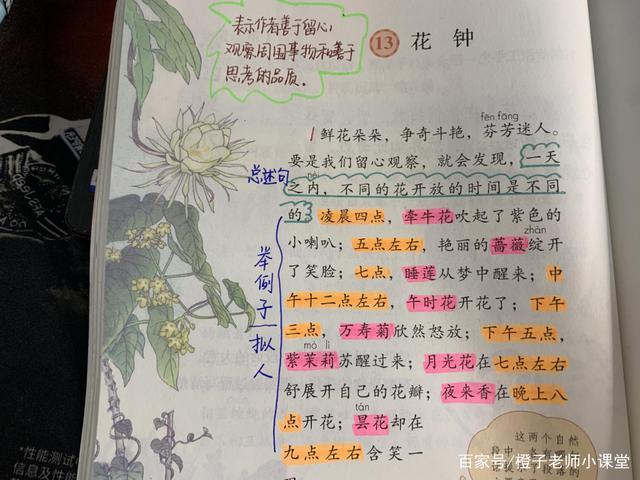 表示作者善于留心
观察周围事物和善于
思考的品质。
13 花钟
fēn fāng
1 鲜花朵朵，争奇斗艳，芬芳迷人。
要是我们留心观察，就会发现，一天
之内，不同的花开放的时间是不同
的。凌晨四点，牵牛花吹起了紫色的
zhàn
小喇叭；五点左右，艳丽的蔷薇绽开
了笑脸；七点，睡莲从梦中醒来；中
午十二点左右，午时花开花了；下午
三点，万寿菊欣然怒放；下午五点，
mò lì
紫茉莉苏醒过来；月光花在七点左右
舒展开自己的花瓣；夜来香在晚上八
tán
点开花；昙花却在
九点左右含笑一
总述句
举例子
拟人
这两个自然
*性能测试
信息及性能
百家号/橙子老师小课堂